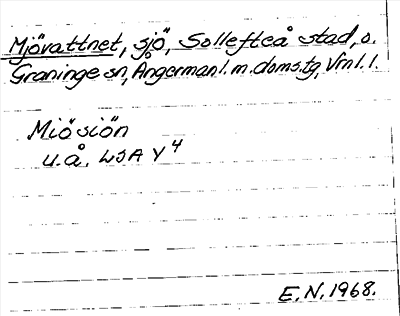 Mjövattnet, sjö, Sollefteå stad, o.
Graninge sn, Ångermanl. m. doms.tg, Vrnl. l.
Miösiön
u.å. LSA Y4
E.N. 1968.